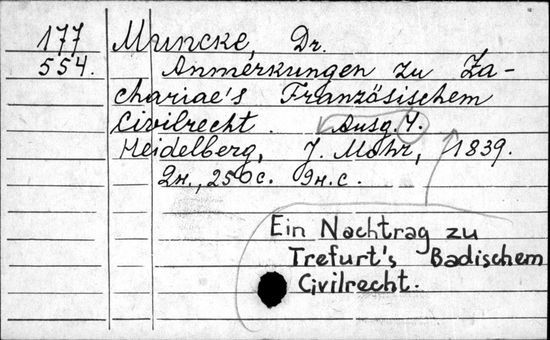 177
554.
Muncke, Dr.
Anmerkungen zu Za-
chariae's Französischem
Civilrecht. Ausg. 4.
Heidelberg, J. Mohr, 1839.
2н., 250 с. 9н.с.
Ein Nachtrag zu
Trefurt's Badischem
Civilrecht.